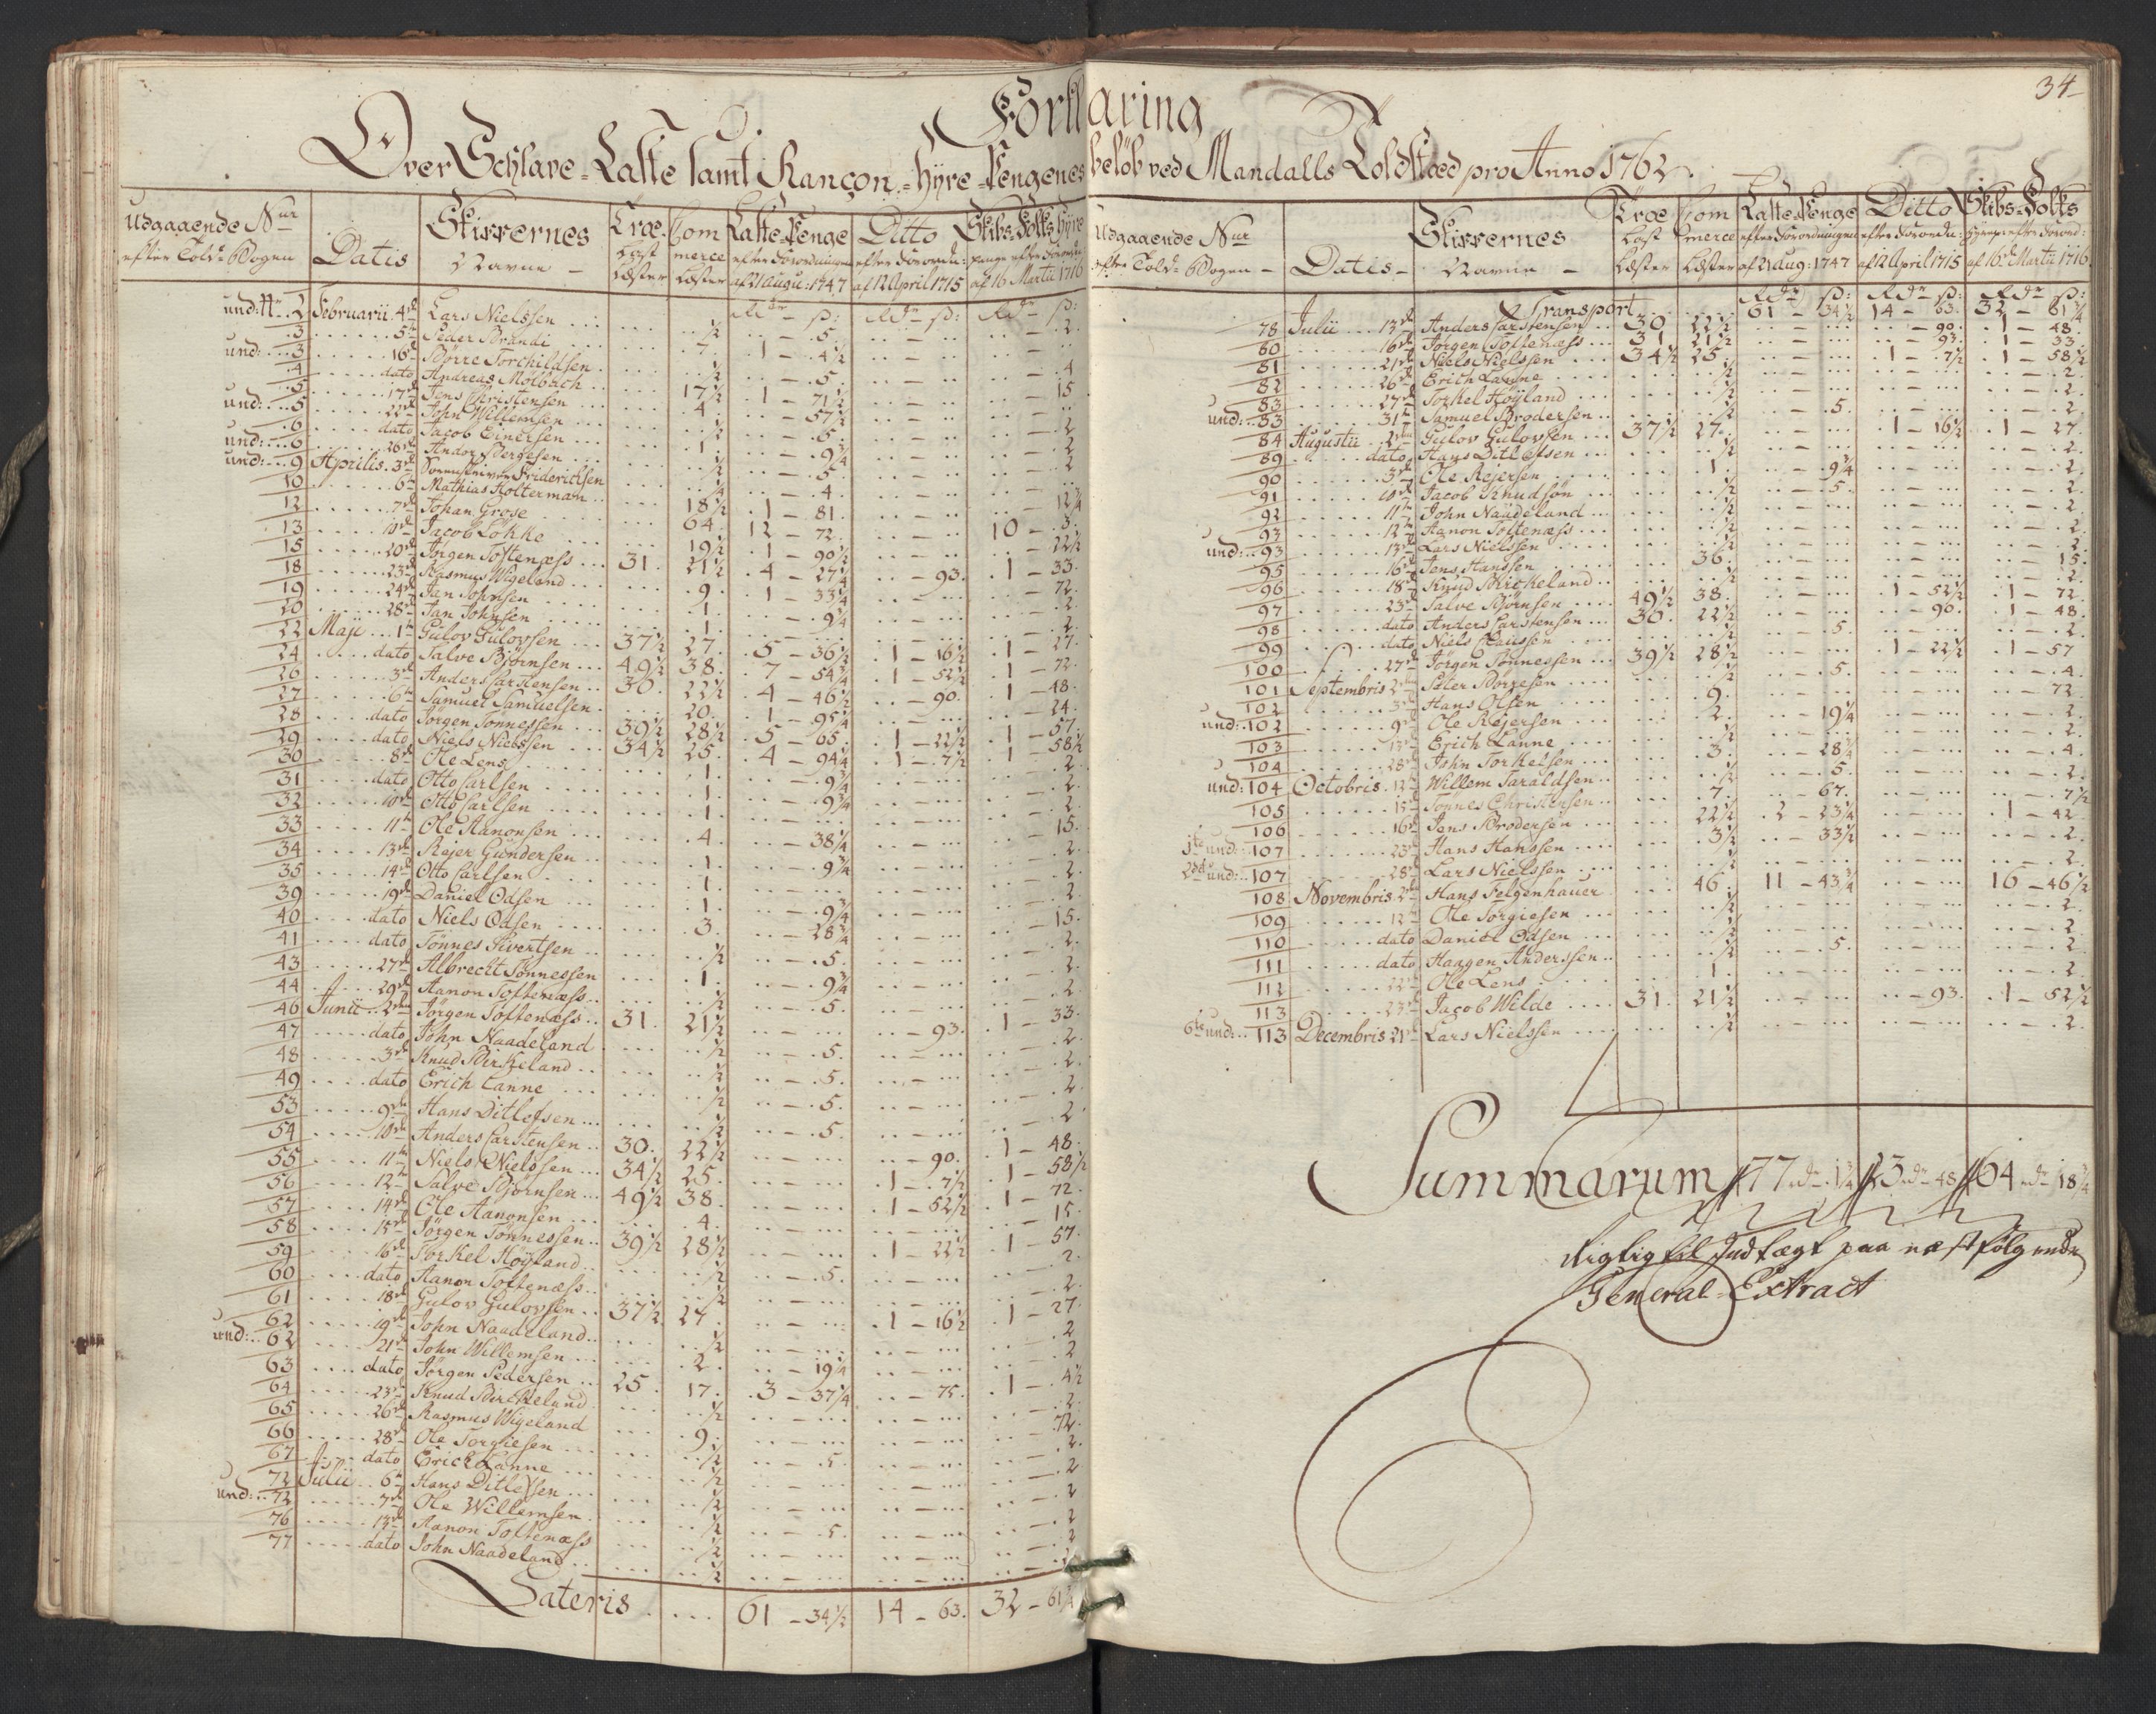 34
Forklaring
Over Schlave-Laste samt Rançon-Hyre-Pengenes beløb ved Mandalls Toldsted pro Anno 1762.
Udgaaende Nur efter Told-Bogen | Datis | Skippernes Navne | Træ-Læst Læster | Commerce Læster | Laste-Penge efter Forordningen af 21 Augu: 1747 | Ditto efter Forordn: af 12 April 1715 | Skibs-Folks Hyre penge efter Forordn: af 16 Martii 1716
Rdr ß: Rdr ß: Rdr ß:
und: No 2 Februarii 4de Lars Nielssen ½ 5. 2.
3 5te Peder Brandi 7 1 - 4½
und: 3 16de Børre Torchildsen ½ 5. 4
4 dato Andreas Mølbach 17½ 1 - 71½ 15
5 17de Jens Christensen 4. 57½
und: 5 22de John Willemsen ½ 5. 2
6 dato Jacob Einersen 1 9¾ 2
und: 6 26de Andor Bergesen ½ 5. 2
und: 9 Aprilis 3de Sorenskriver Friderichsen ½ 4.
10 6te Mathias Holterman 18½ 1 - 81. 12¾
12 7de Johan Grose 64. 12 - 72. 10 - 3.
13 10de Jacob Løkke 19½ 1 - 90½ 22½
15 20de Jørgen Toftenæss 31. 21½ 4 - 27¼ 93. 1 - 33.
18 23de Rasmus Wigeland 9. 1 - 33¼ 72.
19 24de Jan Johnsen 1. 9¾ 2.
20 28de Jan Johnsen 1. 2.
22 Maji 1te Gulov Gulovsen 37½ 27. 5 - 36½ 1 - 16½ 1 - 27.
24 dato Salve Bjørnsen 49½ 38. 7 - 54¾ 1 - 52½ 1 - 72.
26 3de Anders Carstensen 30. 22½ 4 - 46½ 90. 1 - 48.
27 6te Samuel Samuelsen 20. 1 - 95¼ 24.
28 dato Jørgen Tønnessen 39½ 28½ 5 - 65. 1 - 22½ 1 - 57.
29 dato Niels Nielssen 34½ 25. 4 - 94¼ 1 - 7½ 1 - 58½
30 8de Ole Lens 1. 9¾ 2.
31 dato Otto Carlsen 1. 9¾ 2.
32 10de Otto Carlsen 1. 2.
33 11te Ole Aanonsen 4. 38¼ 15.
34 13de Rejer Gundersen 1. 9¾ 2.
35 14de Otto Carlsen 1. 2.
39 19de Daniel Odsen 1. 9¾ 2.
40 dato Niels Odsen 3. 28¾ 15.
41 dato Tønnes Sivertsen ½ 5. 2.
43 27de Albrecht Tønnessen 1. 9¾ 2.
44 29de Aanon Toftenæss ½ 5. 2.
46 Junii 2den Jørgen Toftenæss 31. 21½ 93. 1 - 33.
47 dato John Naadeland ½ 5. 2.
48 3de Knud Birkeland ½ 5. 2.
49 dato Erich Lanne ½ 5. 2.
53 9de Hans Ditlofsen ½ 5. 2
54 10de Anders Carstensen 30. 22½ 90. 1 - 48.
55 11te Niels Nielssen 34½ 25. 1 - 7½ 1 - 58½
56 12te Salve Bjørnsen 49½ 38. 1 - 52½ 1 - 72.
57 14de Ole Aanonsen 4. 15.
58 15de Jørgen Tønnessen 39½ 28½ 1 - 22½ 1 - 57.
59 16de Torkel Høyland ½ 5. 2.
60 dato Aanon Toftenæss ½ 2.
61 18de Gulov Gulovsen 37½ 27. 1 - 16½ 1 - 27.
62 19de John Naadeland ½ 2
und: 62 21de John Willemsen 2. 19¼ 2
63 dato Jørgen Pedersen 25. 17. 3 - 37¼ 75. 1 - 4½
64 23de Knud Birkeland ½ 2.
65 26de Rasmus Wigeland 9. 72.
66 28de Ole Torgiesen ½ 5. 2.
67 dato Erick Lanne ½ 2
72 Julii 6te Hans Ditlefsen ½ 2
und: 72 7de Ole Willemsen ½ 5. 2
76 13de Aanon Toftenæss ½ 2
77 dato John Naadeland ½ 2
Lateris 61 - 34½ 14 - 63. 32 - 61¼
Udgaaende Nur efter Told-Bogen | Datis | Skippernes Navne | Træ Læst Læster | Commerce Læster | Laste-Penge efter Forordningen af 21 Aug: 1747 | Ditto efter Forordn: af 12 April 1715 | Skibs-Folks Hyrep: efter Forord: af 16de Martii 1716.
Rdr ß: Rdr ß: Rdr ß:
Transport 61 - 34½ 14 - 63. 32 - 61¼
78 Julii 13de Anders Carstensen 30 22½ 90. 1 - 48.
80 16de Jørgen Toftenæss 31 21½ 93. 1 - 33.
81 21de Niels Nielssen 34½ 25. 1 - 7½ 1 - 58½
82 26de Erich Lanne ½ 2.
83 27de Torkel Høyland ½ 2.
und: 83 31te Samuel Brodersen ½ 5. 2.
84 Augustii 2den Gulov Gulovsen 37½ 27. 1 - 16½ 1 - 27.
89 dato Hans Ditlefsen ½ 2.
90 3de Ole Rejersen 1. 9¾ 2.
91 10de Jacob Knudsøn ½ 5. 2.
92 11te John Naadeland ½ 2.
93 12te Aanon Toftenæss ½ 2.
und: 93 13de Lars Nielssen ½ 2.
95 16de Jens Hanssen 36. 15.
96 18de Knud Birckeland ½ 2.
97 23de Salve Bjørnsen 49½ 38. 1 - 52½ 1 - 72.
98 dato Anders Carstensen 30. 22½ 90. 1 - 48.
99 dato Niels Claussen ½ 5. 2.
100 27de Jørgen Tønnessen 39½ 28½ 1 - 22½ 1 - 57
101 Septembris 2den Peter Børgesen ½ 5. 4.
102 3de Hans Olsen 9. 72.
und: 102 9de Ole Rejersen 2. 19¼ 2.
103 13de Erich Lanne ½ 2.
104 28de John Torkelsen 3. 28¾ 4.
und: 104 Octobris 12te Willem Taraldsen ½ 5. 2.
105 15de Tønnes Christensen 7. 67. 7½
106 16de Jens Brodersen 22½ 2 - 23¼ 1 - 42.
1te und: 107 23de Hans Hanssen 3½ 33½ 2.
2det und: 107 28de Lars Nielssen ½ 2.
108 Novembris 2den Hans Felgenhauer 46. 11 - 43¾ 16 - 46½
109 12te Ole Torgiesen ½ 2.
110 dato Daniel Odsen ½ 2.
111 dato Haagen Anderssen ½ 5. 2.
112 22de Ole Lens 1. 2.
113 23de Jacob Wilde 31. 21½ 93. 1 - 52½
6te und: 113 Decembris 21de Lars Nielssen ½ 2.
Summarum 77 dr 1¾ 23 dr 48 64 dr 18¾
Rigtig til Indtægt paa næstfølgende
General-Extract